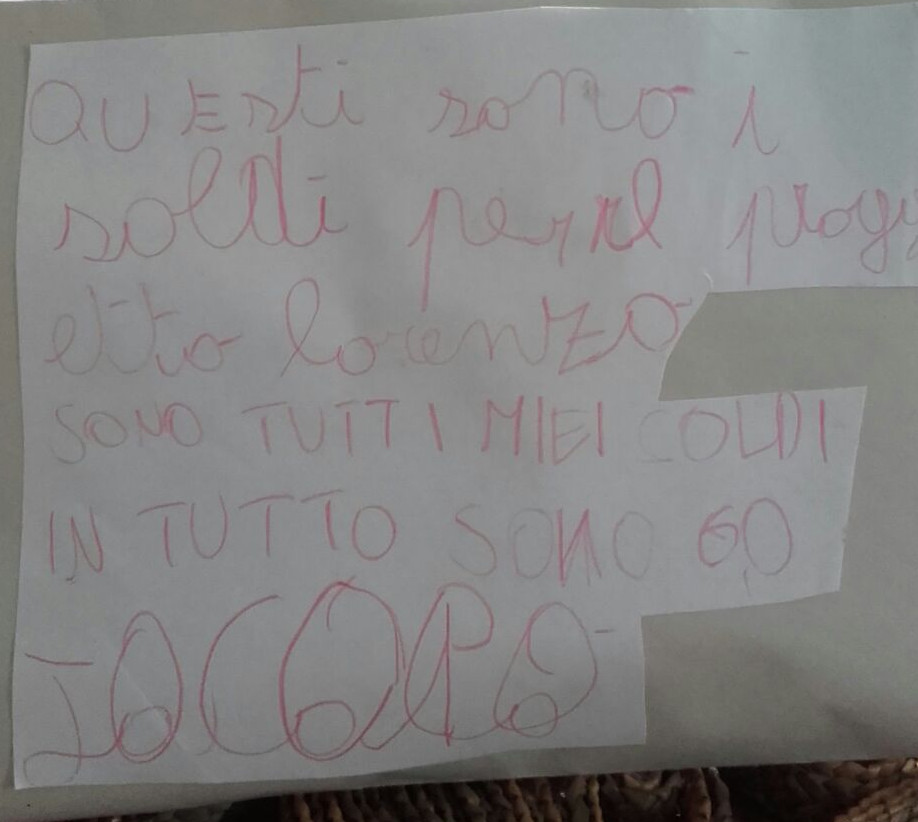 QUEsti sono i
soldi per il prog
etto lorenzo
SONO TUTTI MIEI SOLDI
IN TUTTO SONO 60
JACOPO